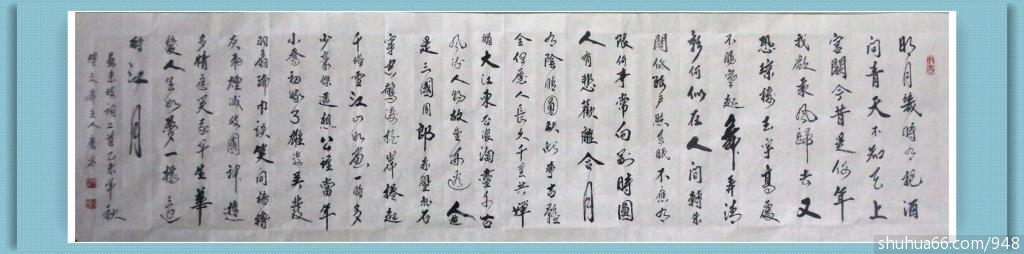 明月幾時有把酒
問青天不知天上
宮闕今昔是何年
我欲乘風歸去又
恐瓊樓玉宇高處
不勝寒起舞弄清
影何似在人間轉朱
閣低綺戶照無眠不應有
恨何事常向別時圓
人有悲歡離合月
有陰晴圓缺此事古難
全但願人長久千里共嬋
娟大江東去浪淘盡千古
風流人物故壘西邊人
是三國周郎赤壁亂石
穿空驚濤拍岸捲起
千堆雪江山如畫一時多
少豪傑遙想公瑾當年
小喬初嫁了雄姿英發
羽扇綸巾談笑間檣櫓
灰飛煙滅故國神遊
多情應笑我早生華
髮人生如夢一樽還
酹江月
蘇東坡詞二首乙未年秋
shuhua66.com/948